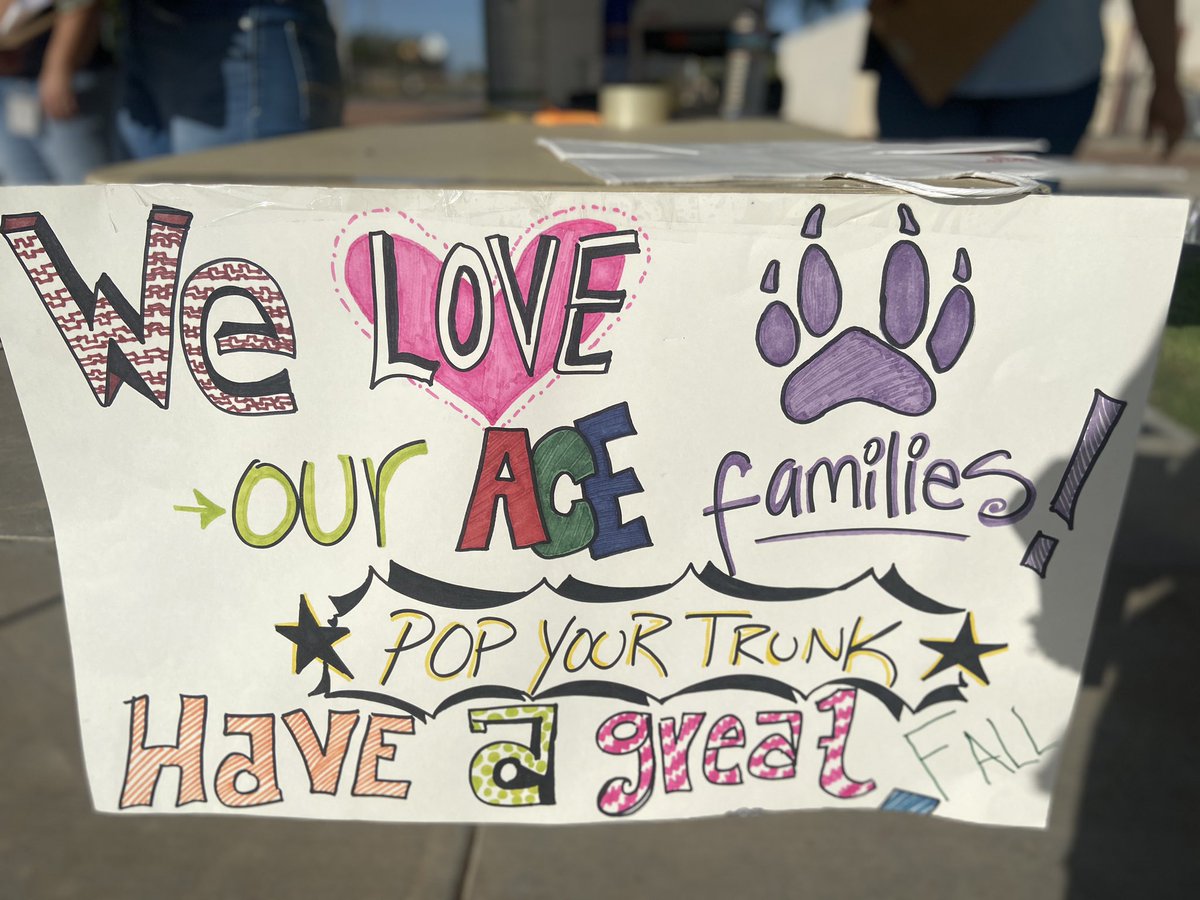 We LOVE
our ACE families!
POP YOUR TRUNK
Have a great FALL